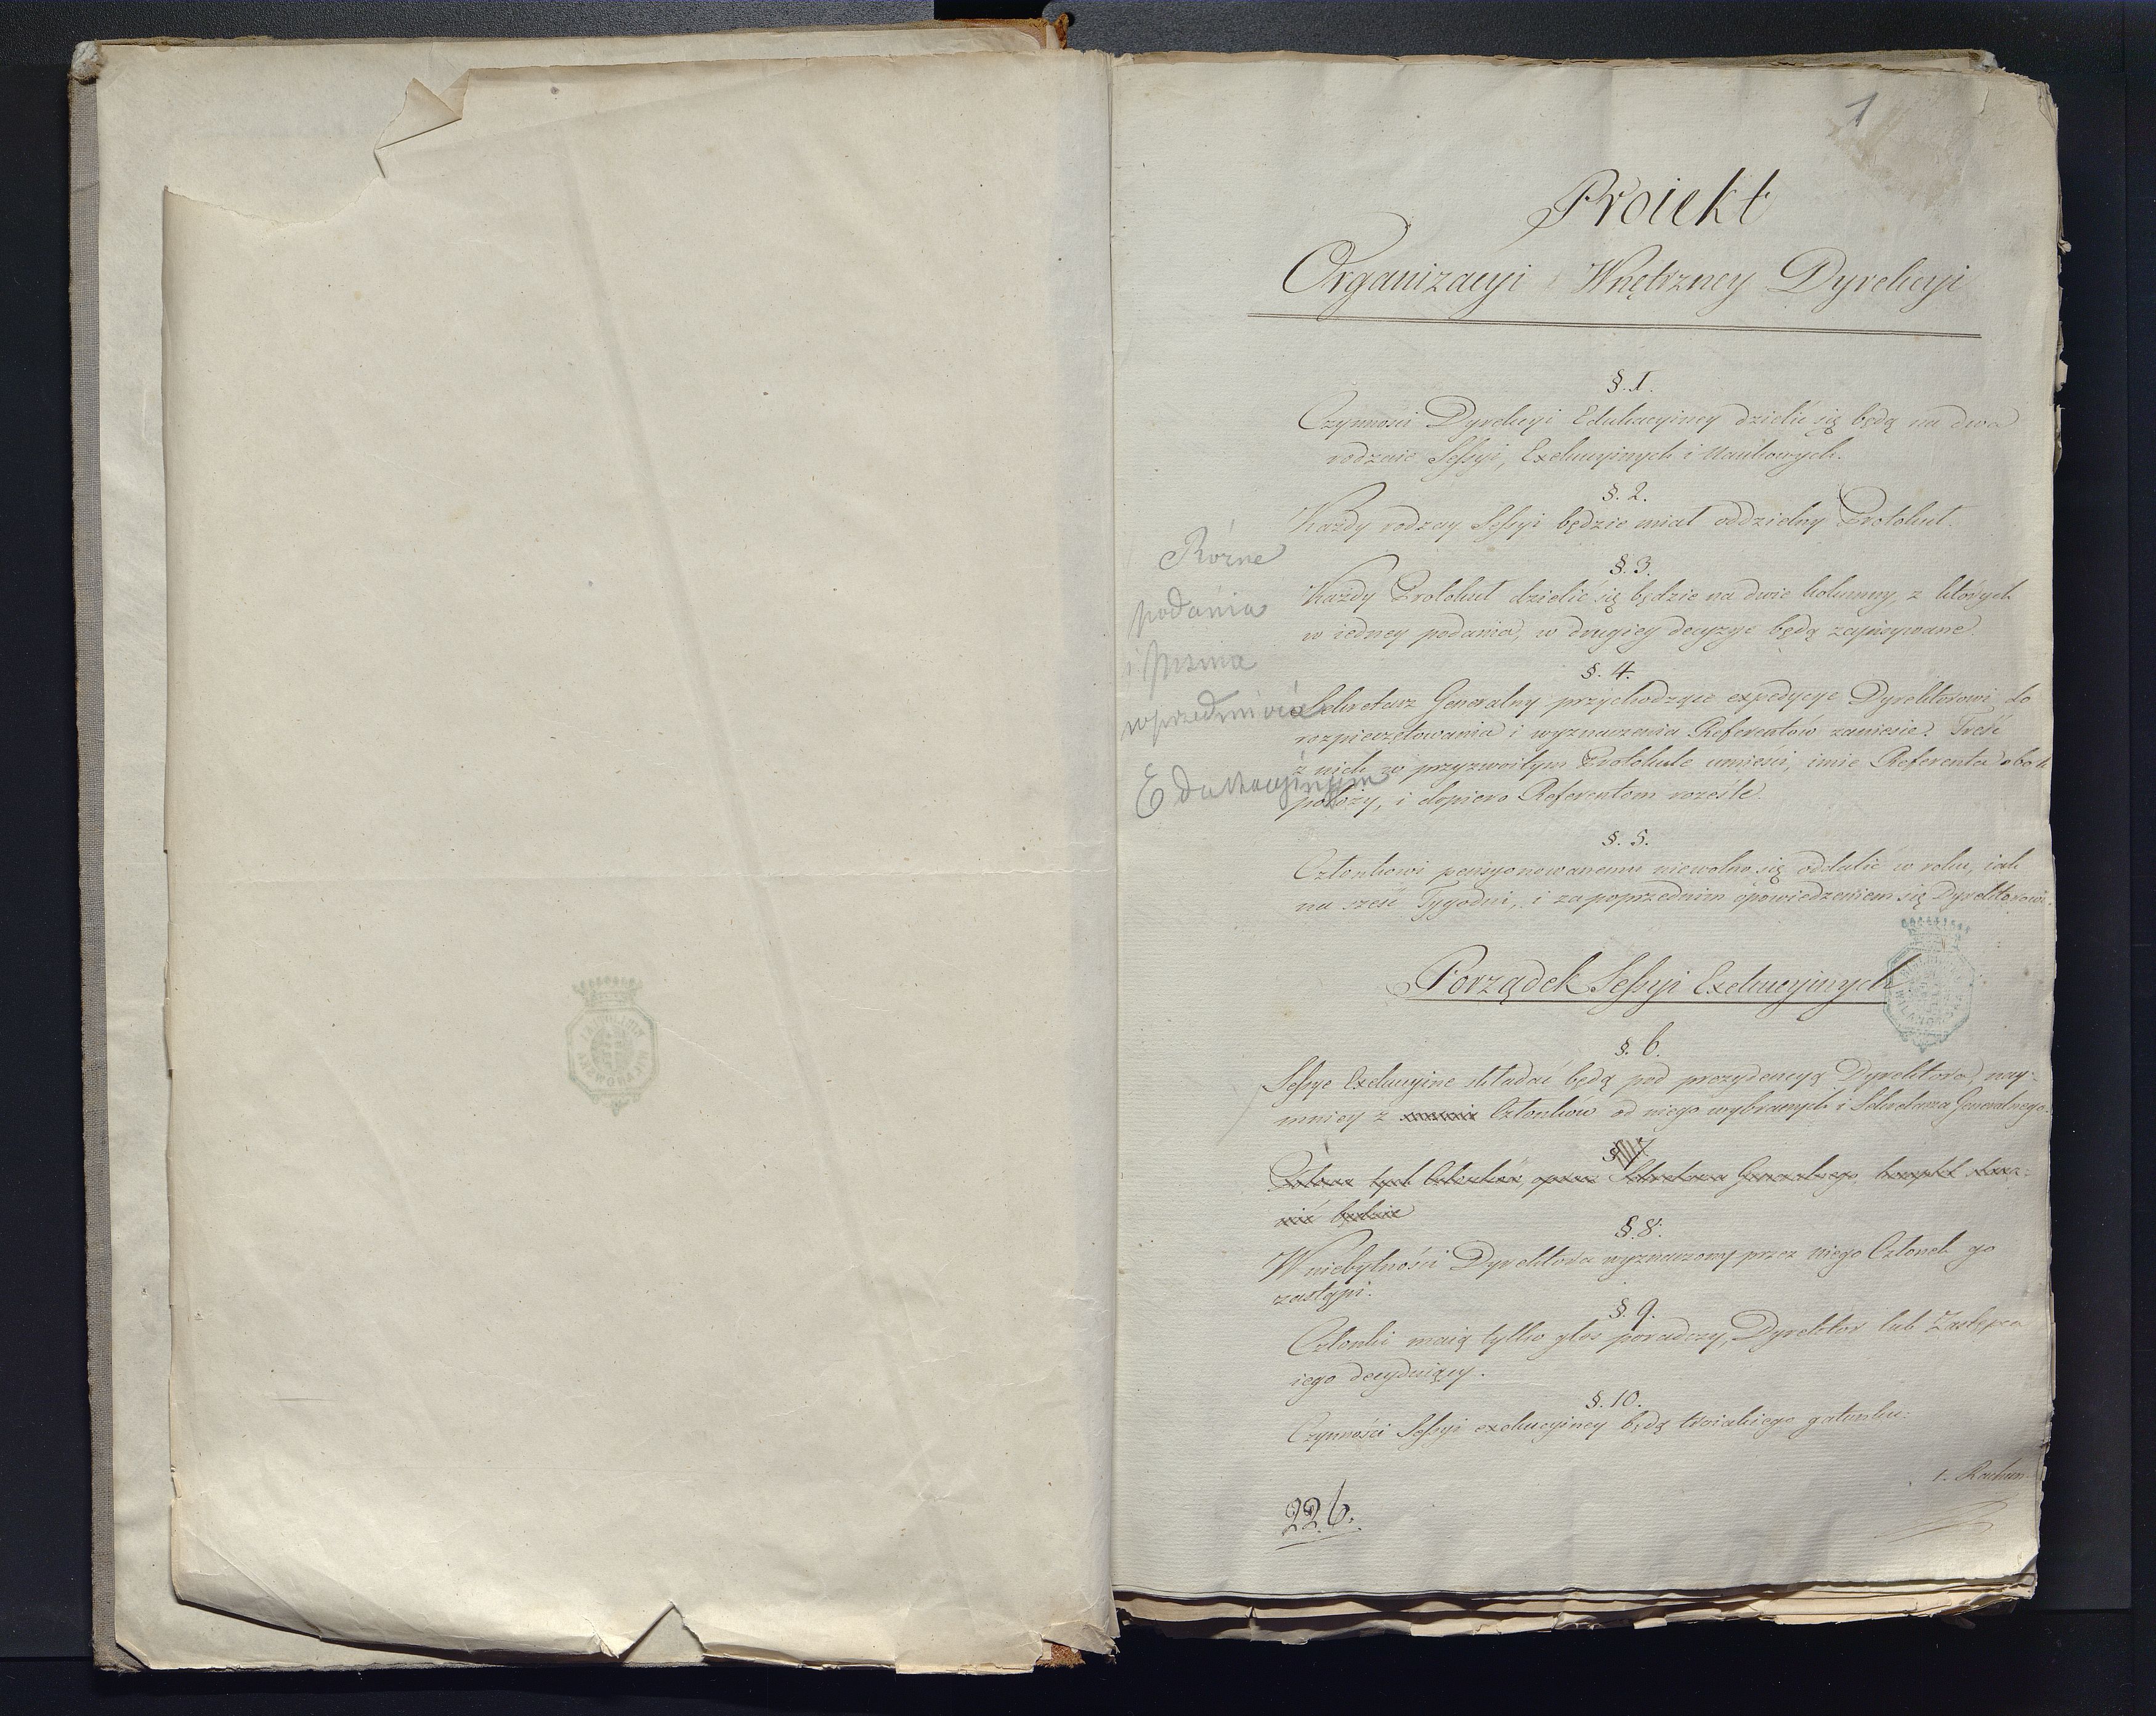 1
Proiekt
Organizacyi Wnętrzney Dyrekcyi
§. 1.
Czynności Dyrekcyi Edukacyiney dzielić się będą na dwa
rodzaie Sessyi, Exekucyinych i Naukowych.
§. 2.
Każdy rodzay Sessyi będzie miał oddzielny Protokuł.
§. 3.
Każdy Protokuł dzielić się będzie na dwie kolumny, z których
w iedney podania, w drugiey decyzye będą zapisywane.
§. 4.
Sekretarz Generalny przychodzące expedycye Dyrektorowi do
rozpieczętowania i wyznaczenia Referentów zaniesie. Treść
z nich w przyzwoitym Protokule umieści, imie Referenta obok
położy, i dopiero Referentom roześle.
§. 5.
Członkowi pensyonowanemu niewolno się oddalić w roku, iak
na sześć Tygodni, i za poprzednim opowiedzeniem się Dyrektorowi.
Różne
podania
i pisma
w przedmiocie
Edukacyinym
Porządek Sessyi Exekucyinych
§. 6.
Sessye Exekucyine składać będą pod prezydencyą Dyrektora, nay-
mniey z Członków od niego wybranych i Sekretarza Generalnego.
§ 7
tych Członków, oprócz Sekretarza Generalnego, komplet
nić będzie
§. 8.
W niebytności Dyrektora wyznaczony przez niego Członek go
zastąpi.
§. 9.
Członki maią tylko głos poradczy, Dyrektor lub Zastępca
iego decyduiący.
§. 10.
Czynności Sessyi exekucyiney będą troiakiego gatunku:
1. Rachun-
226.